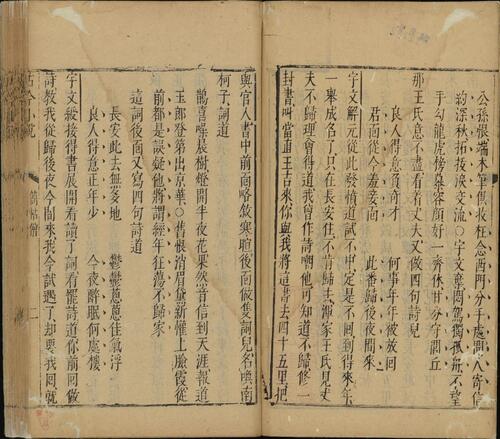 公孫恨端木筆俱收枉念西門分手處聞人寄信
約深秋拓拔淚交流○宇文棄悶駕獨孤舟不望
手勾龍虎榜慕容顏好一齊休甘分守閭丘
那王氏意不盡看着丈夫又做四句詩兒
良人得意負奇才 何事年年被放回
君面從今羞妾面 此番歸後夜間來
宇文解元從此發憤道試不中定是不回到得來年
一舉成名了只在長安住不肯歸去渾家王氏見丈
夫不歸理會得道我曾作詩嘲他可知道不歸修一
封書叫當直王吉來你與我將這書去四十五里把
與官人書中前面略敘寒暄後面做隻詞兒名喚南
柯子詞道
鵲喜噪晨樹燈開半夜花果然音信到天涯報道
玉郎登第出京華○舊恨消眉黛新懽上臉霞從
前都是誤疑他將謂經年狂蕩不歸家
這詞後面又寫四句詩道
長安此去無多地 鬱鬱蔥蔥佳氣浮
良人得意正年少 今夜醉眠何處樓
宇文綬接得書展開看讀了詞看罷詩道你前回做
詩教我從歸後夜今間來我今試過了却要我回就
古今小說 簡帖僧 二